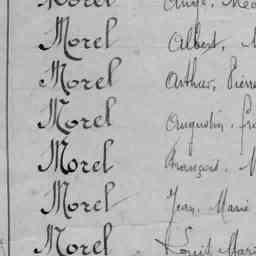 Morel Ange, Méd
Morel Albert, M
Morel Arthur, Pierre
Morel Augustin, fra
Morel François, M
Morel Jean, Marie
Morel Louis, Marie